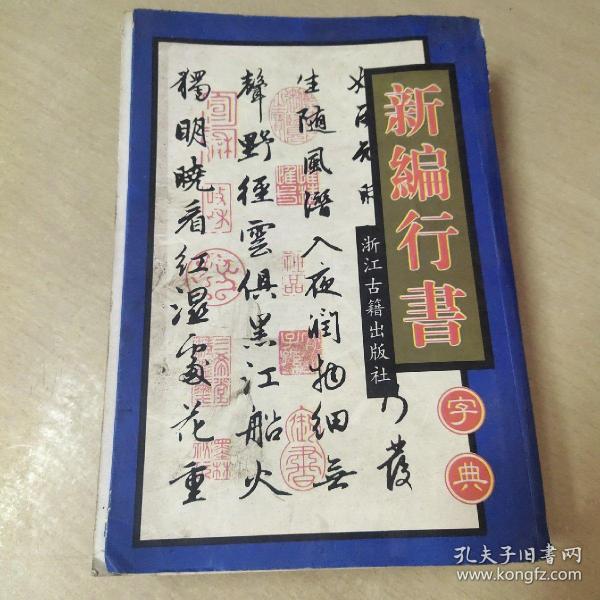 新編行書
字典
浙江古籍出版社
乃發
生随風潛入夜潤物細無
聲野徑雲俱黑江船火
獨明曉看紅濕處花重
孔夫子旧书网
www.kongfz.com